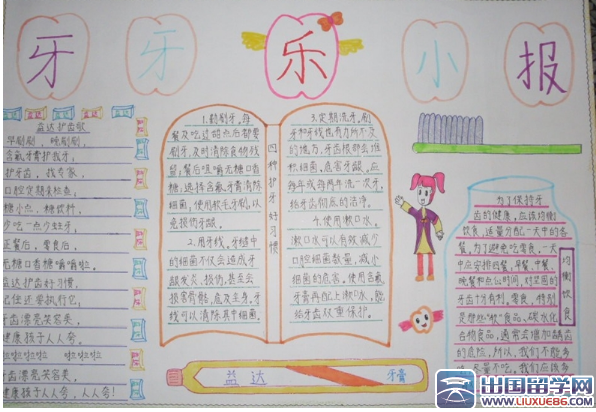 牙牙乐小报
益达护齿歌
早刷刷,晚刷刷,
含氟牙膏护我牙;
护牙齿,找专家,
口腔定期来检查;
糖小点,糖饮料,
少吃一点少蛀牙;
正餐后,零食后,
无糖口香糖嚼嚼啦。
益达护齿好习惯,
记住还要执行它,
牙齿漂亮笑容美,
健康孩子人人夸!
啦啦啦啦 啦啦啦啦
牙齿漂亮笑容美,
健康孩子人人夸,人人夸!
四种护牙好习惯
1.勤刷牙。每
餐及吃过甜点后都要
刷牙,及时清除食物残
渣,餐后咀嚼无糖口香
糖,选择含氟牙膏清除
细菌,使用软毛牙刷,以
免损伤牙龈。
2.用牙线。牙缝中
的细菌不仅会造成牙
龈发炎、损伤,甚至会
损害骨骼,危及全身,牙
线可以清除其中细菌。
3.定期洗牙。刷
牙和牙线也有力所不及
的地方,牙齿根部会堆
积细菌,危害牙龈,应
每年或每两年洗一次牙,
给牙齿彻底的洁净。
4.使用漱口水。
漱口水可以有效减少
口腔细菌数量,减小
细菌的危害。使用含氟
牙膏再配上漱口水,能
给牙齿双重保护。
均衡饮食
为了保持牙
齿的健康,应该均衡
饮食,适量分配一天中的各
餐,为了避免吃零食,一天
中应安排四餐,早餐,中餐、
晚餐和点心时间,对坚固的
牙齿十分有利。零食,特别
是粘性"软"食品,碳水化
合物食品,通常会增加龋齿
的危险,所以,我们不能多
尽量不吃,我们应该多
益达 牙膏
出国留学网
WWW.LIUXUE86.COM